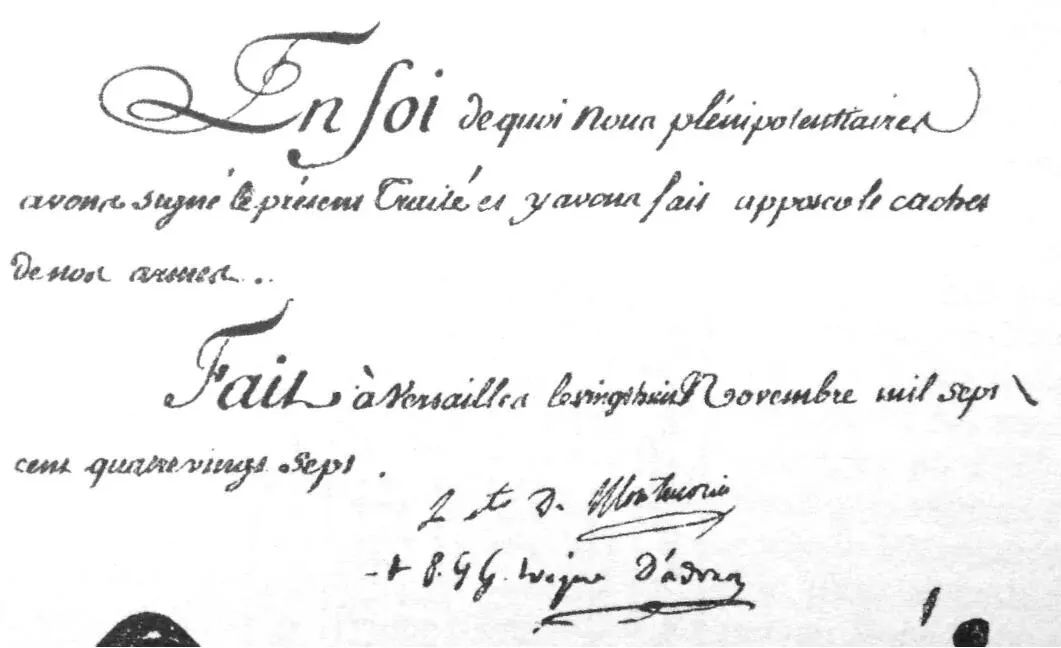 En foi de quoi Nous plénipotentiaires
avons signé le présent Traité et y avons fait apposer le cachet
de nos armes..
Fait à Versailles le vingt huit Novembre mil sept
cent quatre vingt sept.
Montmorin
+ P. J. G. évêque D'adran